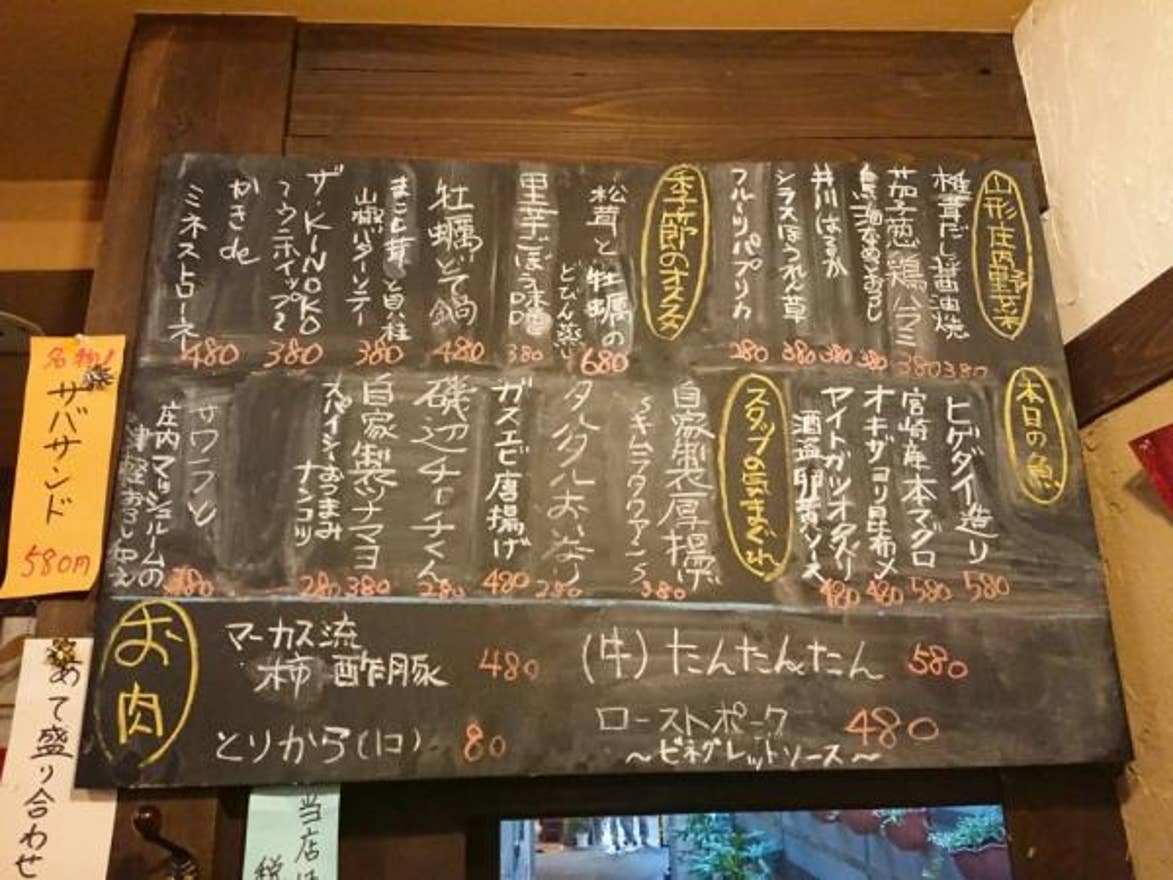 山形庄内野菜
椎茸だし醤油焼
380
茄子葱鶏ハラミ
380
380
井川はるか
380
シラスほうれん草
380
フルーツパプリカ
280
季節のオススメ
松茸と牡蠣の
どびん蒸し
680
里芋ごぼう味噌
380
牡蠣どて鍋
480
まこも茸と貝柱
山椒バターソテー
380
ザ・KINOKO
380
かきde
ミネストローネ
480
本日の魚
ヒゲダイ造り
580
宮崎産本マグロ
580
オキザヨリ昆布〆
480
酒盗卵黄ソース
480
スタッフの気まぐれ
自家製厚揚げ
380
タルタルおいなり
280
ガスエビ唐揚げ
480
磯辺チーチくん
280
自家製ツナマヨ
380
スパイシーおつまみ
ナンコツ
280
サワラと
庄内マッシュルームの
津軽おろし和え
お肉
マーカス流
柿酢豚 480
(牛)たんたんたん 580
とりから(1コ) 80
ローストポーク 480
～ビネグレットソース～
名物!
サバサンド
580円
あて盛り合わせ
当店は
税